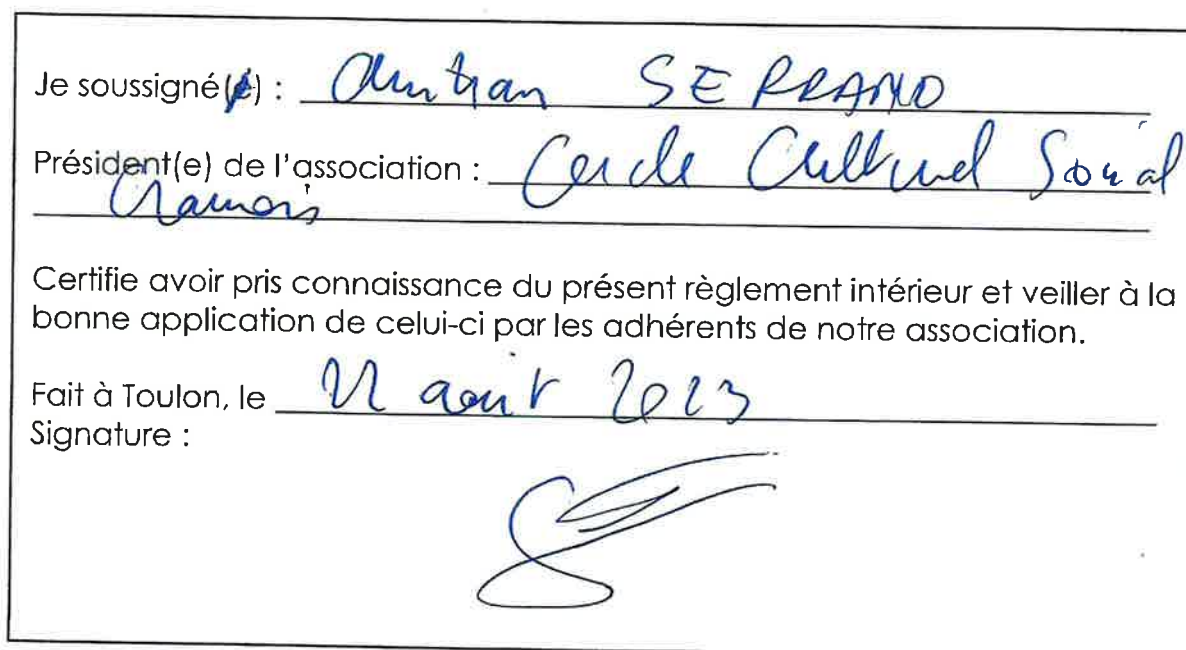 Je soussigné(e) : Christian SERRANO
Président(e) de l'association : Cercle Culturel Social
Chamois
Certifie avoir pris connaissance du présent règlement intérieur et veiller à la
bonne application de celui-ci par les adhérents de notre association.
Fait à Toulon, le 22 août 2023
Signature :